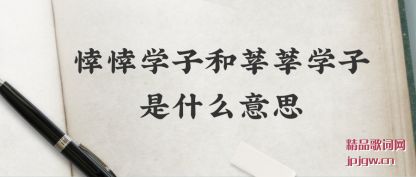 悻悻学子和莘莘学子
是什么意思
精品歌词网
jpjgw.cn